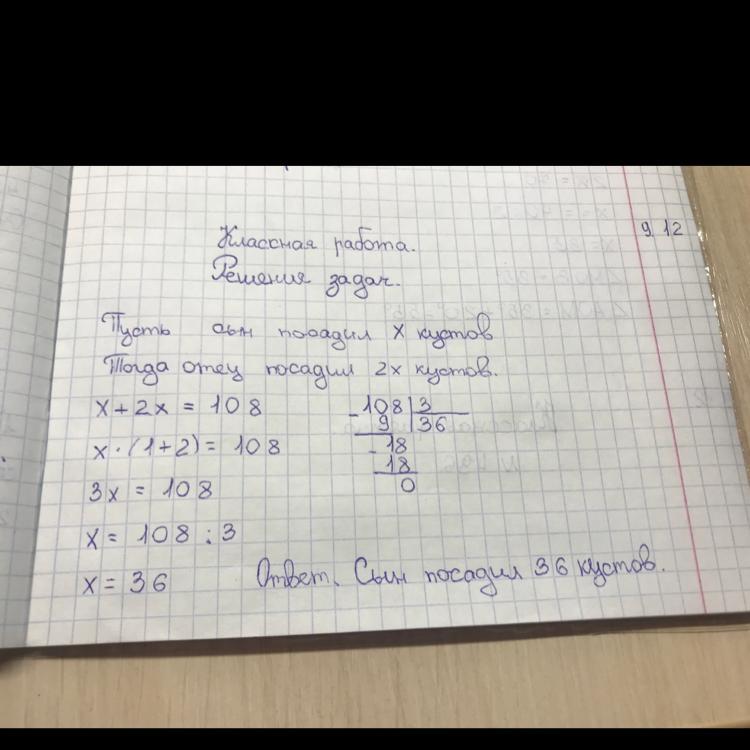 9.12
Классная работа.
Решения задач.
Пусть сын посадил x кустов
Тогда отец посадил 2x кустов.
x + 2x = 108
x · (1+2) = 108
3x = 108
x = 108 : 3
x = 36
- 108 | 3
9 | 36
- 18
18
0
Ответ. Сын посадил 36 кустов.